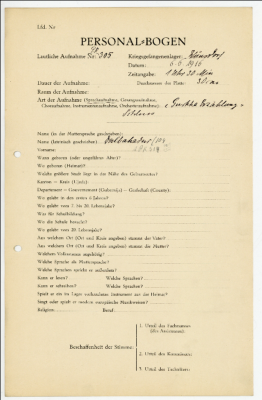 Lfd. Nr
PERSONAL-BOGEN
Lautliche Aufnahme Nr.: 305
Kriegsgefangenenlager:
Datum: 6.6.1916
Zeitangabe: 1 Uhr 30 Min
Dauer der Aufnahme: Durchmesser der Platte:
Raum der Aufnahme:
Art der Aufnahme (Sprechaufnahme, Gesangsaufnahme,
Choraufnahme, Instrumentenaufnahme, Orchesteraufnahme):
Name (in der Muttersprache geschrieben):
Name (lateinisch geschrieben):
Vorname:
Wann geboren (oder ungefähres Alter)?
Wo geboren (Heimat)?
Welche größere Stadt liegt in der Nähe des Geburtsortes?
Kanton — Kreis (Ujezd):
Departement — Gouvernement (Gubernija) — Grafschaft (County):
Wo gelebt in den ersten 6 Jahren?
Wo gelebt vom 7. bis 20. Lebensjahr?
Was für Schulbildung?
Wo die Schule besucht?
Wo gelebt vom 20. Lebensjahr?
Aus welchem Ort (Ort und Kreis angeben) stammt der Vater?
Aus welchem Ort (Ort und Kreis angeben) stammt die Mutter?
Welchem Volksstamm angehörig?
Welche Sprache als Muttersprache?
Welche Sprachen spricht er außerdem?
Kann er lesen? Welche Sprachen?
Kann er schreiben? Welche Sprachen?
Spielt er ein im Lager vorhandenes Instrument aus der Heimat?
Singt oder spielt er modern europäische Musikweisen?
Religion: Beruf:
1. Urteil des Fachmannes
(des Assistenten):
Beschaffenheit der Stimme:
2. Urteil des Kommissars:
3. Urteil des Fachmannes: